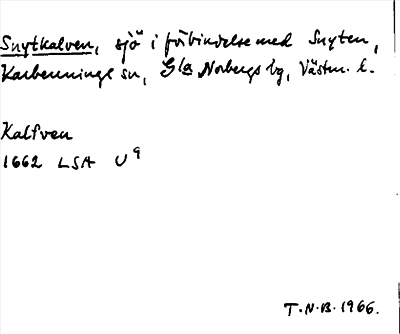 Snytkalven, sjö i förbindelse med Snyten,
Karbennings sn, Gla Norbergs bg, Västm. l.
Kalfven
1662 LSA U9
T.N.B. 1966.